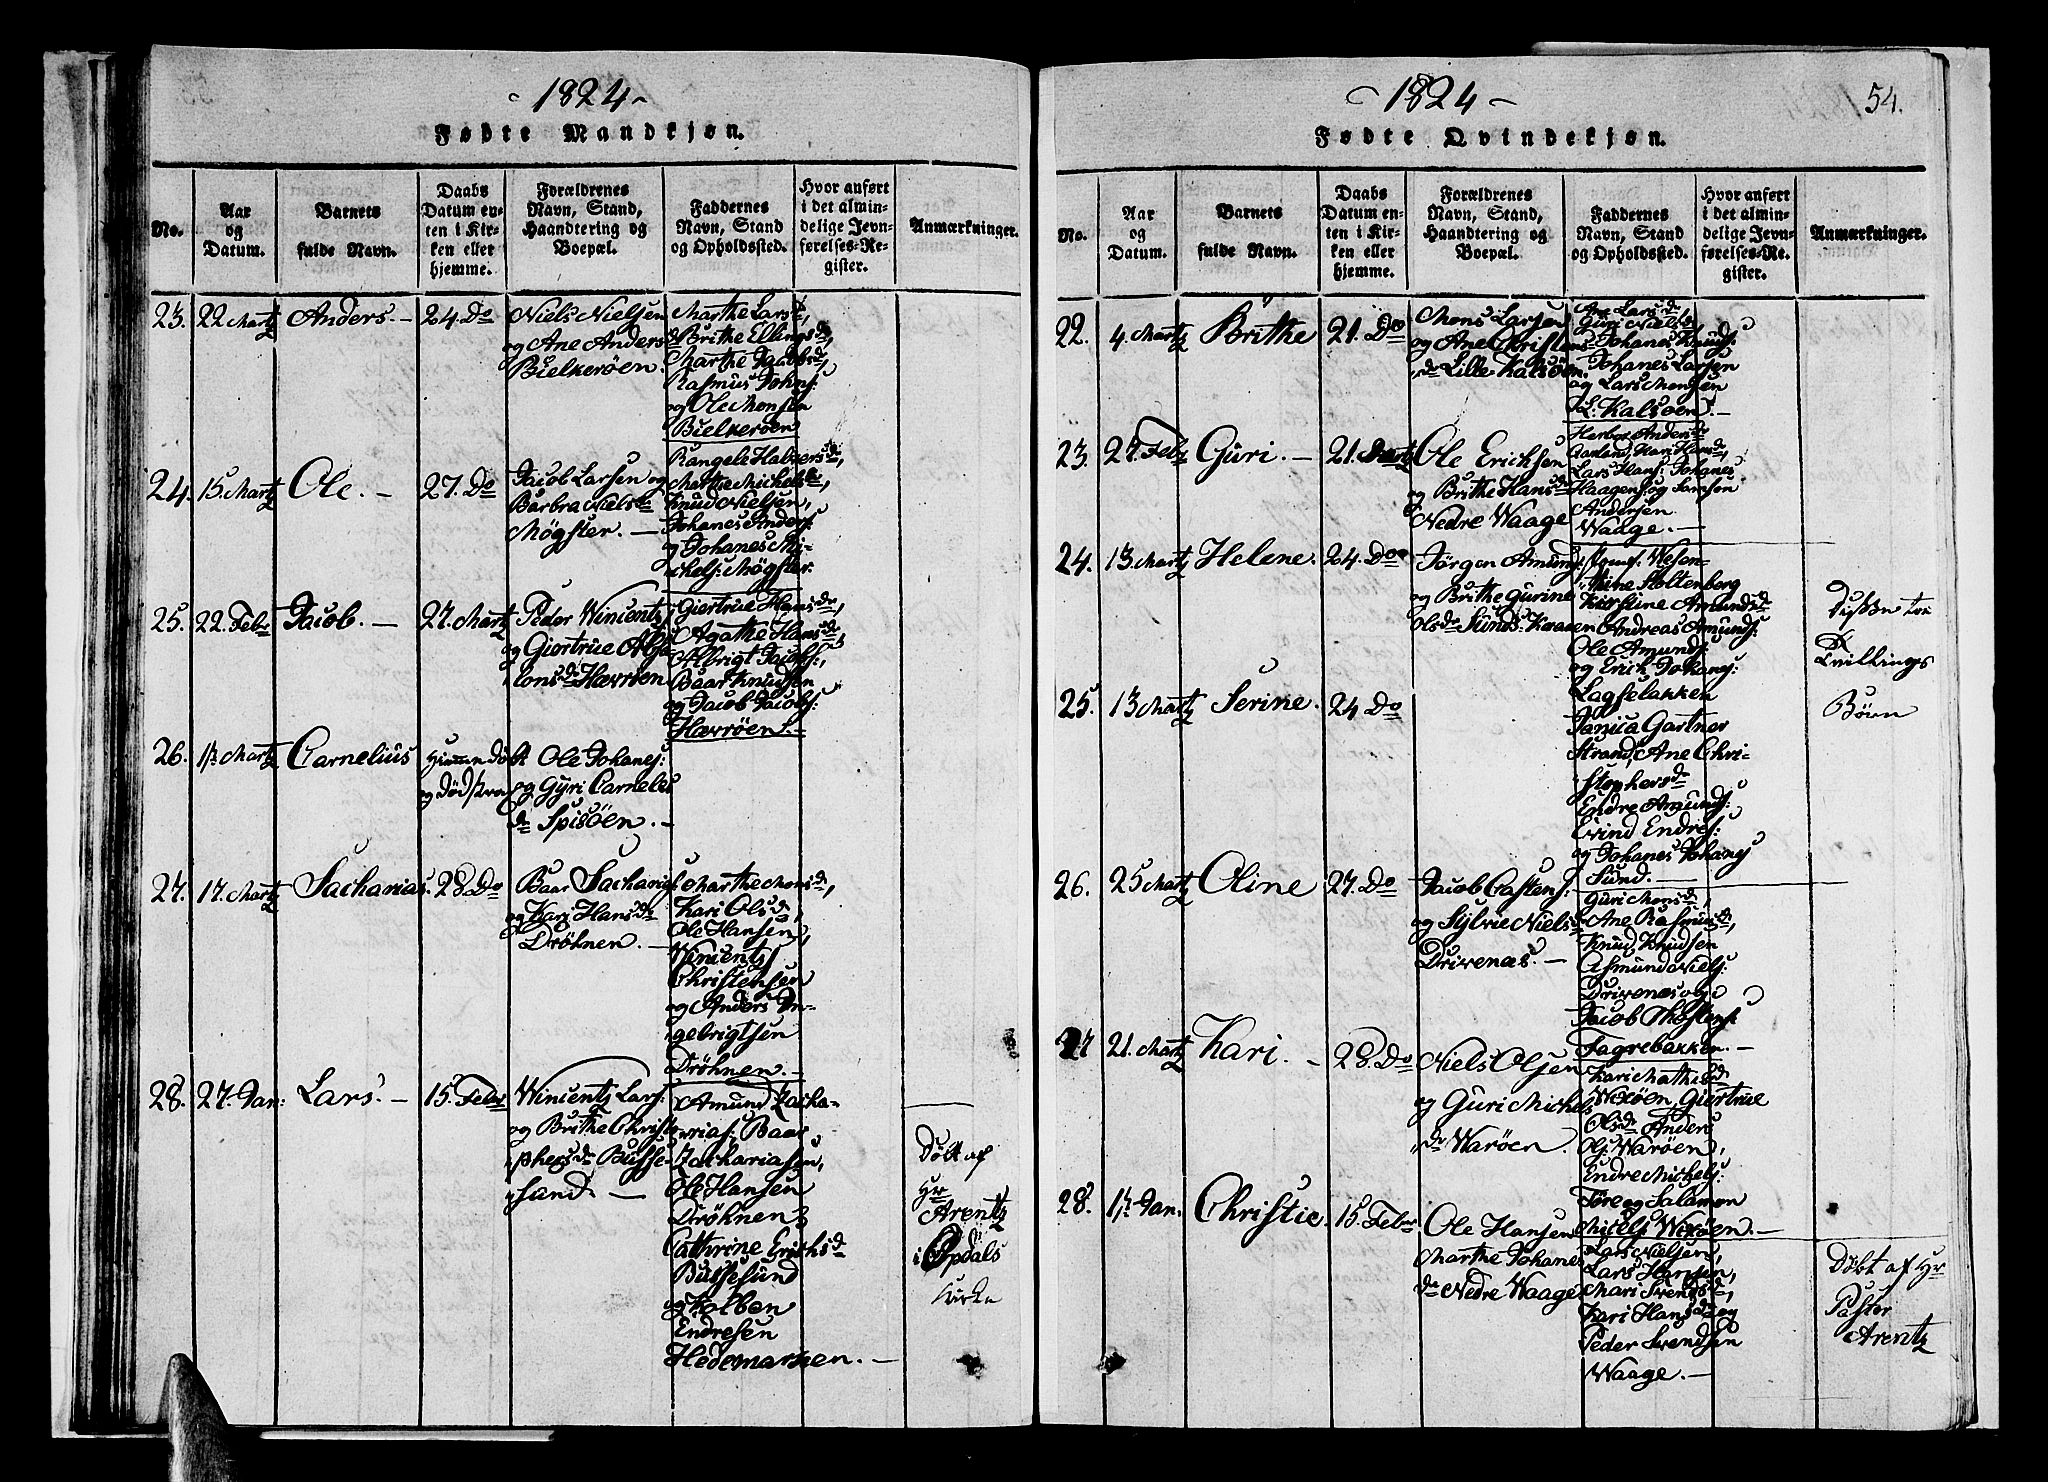 - 1824 -
Fødte Mandkjøn.
No.
Aar
og
Datum.
Barnets
fulde Navn.
Daabs
Datum en-
ten i Kir-
ken eller
hjemme.
Forældrenes
Navn, Stand,
Haandtering og
Boepæl.
Faddernes
Navn, Stand
og Opholdssted.
Hvor anført
i det almin-
delige Jevn-
førelses-Re-
gister.
Anmærkninger.
23. 22 Martz Anders - 24. Do
Niels Nielsen
og Ane Anders
Bielkerøen.
Marthe Larsd,
Brithe Ellingsd,
Marthe Jacobsd,
Rasmus Johns:
og Ole Monsen
Bielkerøen
24. 15. Martz Ole. - 27. Do
Jacob Larsen og
Barbra Nielsd
Møgster. -
Rangele Halversd,
Marthe Michelsd,
Knud Nielsen,
Johanes Anders:
og Johanes Mi-
chels: Møgster.
25. 22. Febr Jacob. - 27. Martz
Peder Wincentz
og Giertrue Abse-
lonsd Hævrøen
Giertrue Hansd,
Agathe Hansd,
Albrigt Jacobs:,
Baar Knudsen
og Jacob Jacobs:
Hævrøen. -
26. Martz Carnelius
Hiemmedøbt
og død strax
Ole Johanes:
og Gyri Carneles
d Spisøen. -
27. 17. Martz Sacharias. 28. Do
Baar Sacharies
og Kari Hansd
Drøhnen. -
Marthe Monsd,
Kari Olsd,
Ole Hansen,
Wincentz
Christensen
og Anders In-
gebrigtsen
Drøhnen. -
28. 27. Jan: Lars. - 15. Febr
Wincentz Lars:
og Brithe Christo-
phersd Busse-
sund. -
Amund Zacha-
rias:, Baar
Zachariasen,
Ole Hansen
Drøhnen,
Cathrine Erichsd
Bussesund
og Kolben
Endresen
Hedemarken. -
Døbt af
Hr
Arentz
i Opdals
Kirke
- 1824 -
54.
Fødte Qvindekjøn.
No.
Aar
og
Datum.
Barnets
fulde Navn.
Daabs
Datum en-
ten i Kir-
ken eller
hjemme.
Forældrenes
Navn, Stand,
Haandtering og
Boepæl.
Faddernes
Navn, Stand
og Opholdssted.
Hvor anført
i det almin-
delige Jevn-
førelses-Re-
gister.
Anmærkninger.
22. 4. Martz Brithe 21. Do
Mons Larsen
og Ane Christens
d Lille Kalsøen.
Ane Larsd,
Guri Nielsd,
Johanes Knuds:
Johanes Larsen
og Lars Monsen
L: Kalsøen. -
23. 27. Febr Guri. - 21. Martz
Ole Ericksen
og Brithe Hansd
Nedre Waage
Herbor Andersd
Aarland, Kari Hansd,
Lars Hans: Johanes
Haagens: og Samson
Andersen
Waage. -
24. 13. Martz Helene. 24. Do
Jørgen Amunds:
og Brithe Gurine
Olsd Sunds:
Stoltenberg
Kirstine Amundsd
Andreas Amunds:
Ole Amunds:
og Erick Johanes:
Lagselakken
Tvillings
Børn
25. 13 Martz Serine. 24 Do
Gartner
Strand, Ane Chri-
stophersd
Endre Amunds:
Eivind Endres:
og Johanes Johanes
Sund. -
26. 25 Martz Oline 27. Do
Jacob Castens:
og Sylvie Nielsd
Drivenæs. -
Guri Monsd,
Ane Rasmusd,
Knud Knudsen
Asmund Niels:
Drivenæs og
Jacob Thostens:
Fagrebakken. -
27 21. Martz Kari. - 28. Do
Niels Olsen
og Guri Michels
d Warøen.
Kari Mathisd
Wexøen, Giertrue
Olsd Anders
Ols: Warøen,
Endre Michels:
Tore og Salamon
Michels: Wexøen. -
28. Jan. Christie. 15. Febr
Ole Hansen
Marthe Johanes
d Nedre Waage
Lars Nielsen,
Lars Hansen,
Mari Svendsd,
Kari Hansd og
Peder Svendsen
Waage. -
Døbt af Hr
Pastor
Arentz